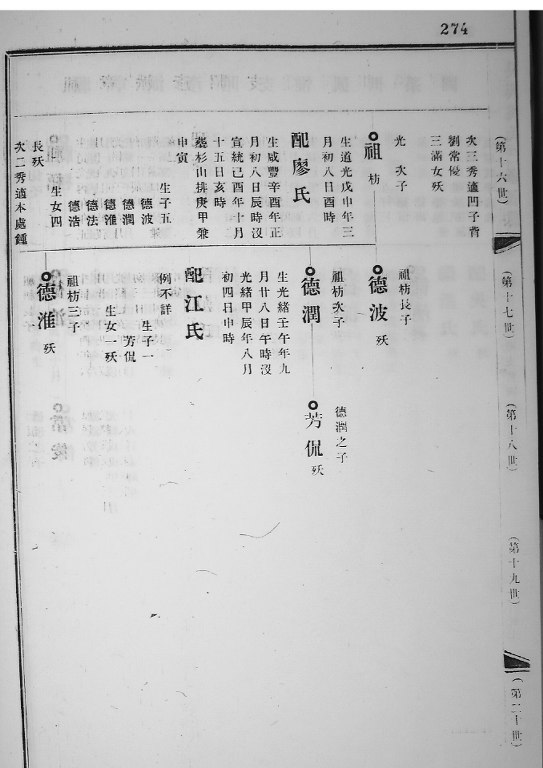 274
(第十六世)
次三秀適凹子背
劉常優
三滿女殀
光 次子
祖枋
生道光戊申年三
月初八日酉時
配廖氏
生咸豐辛酉年正
月初八日辰時沒
宣統己酉年十月
十五日亥時
葬杉山排庚甲兼
申寅
生子五
德波
德潤
德淮
德法
德浩
生女四
長殀
次二秀適本處鍾
(第十七世)
祖枋長子
德波 殀
祖枋次子
德潤
生光緒壬午年九
月廿八日午時沒
光緒甲辰年八月
初四日申時
配江氏
例不詳
生子一
芳侃
生女一殀
祖枋三子
德淮 殀
(第十八世)
德潤之子
芳侃 殀
(第十九世)
(第二十世)